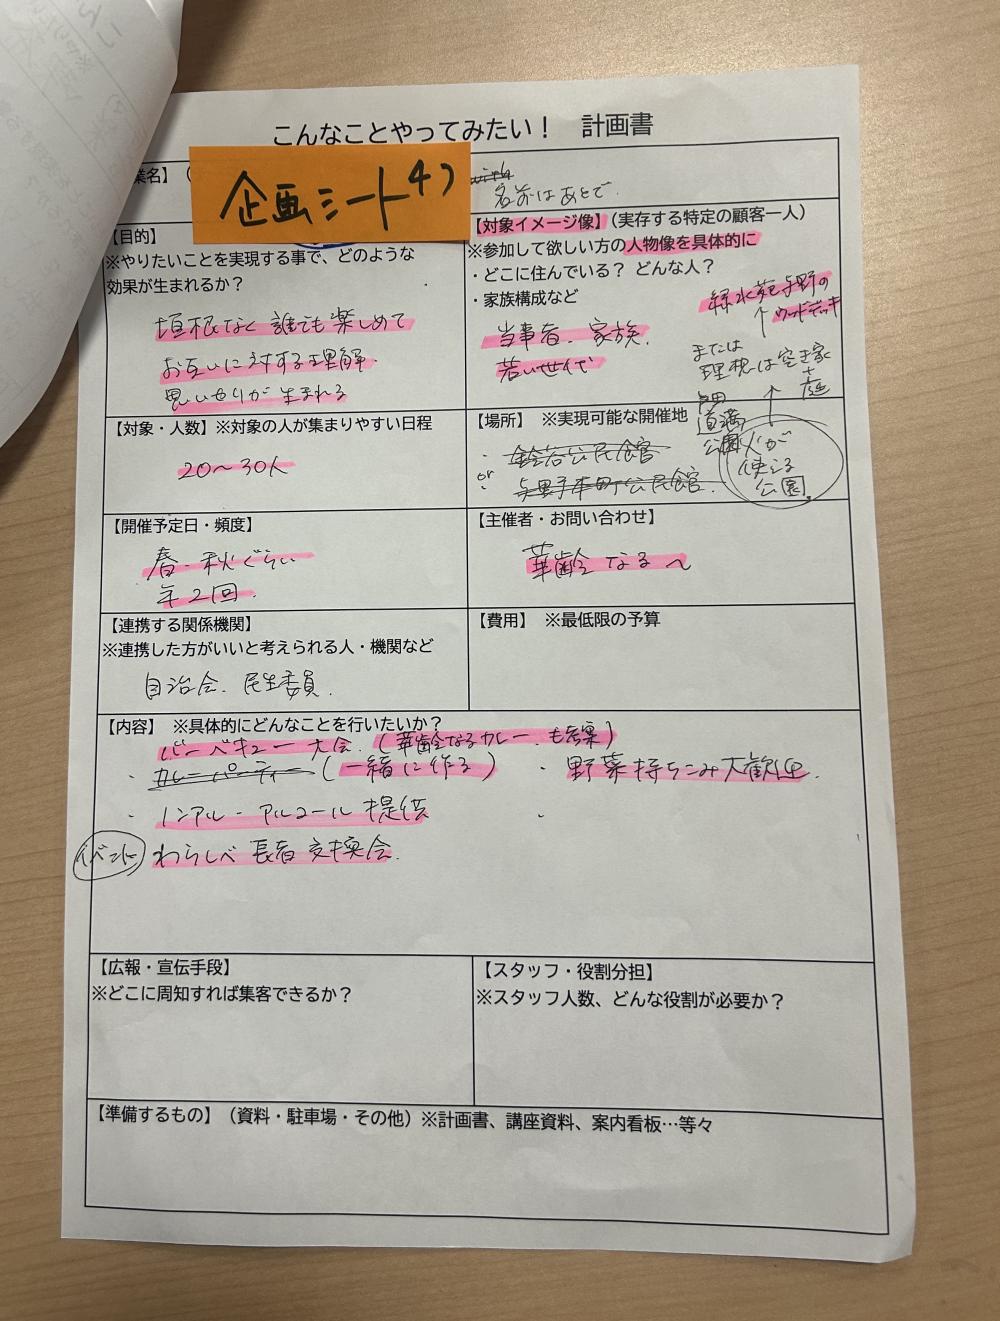 こんなことやってみたい！　計画書
業名】（
企画シート4)
名前はあとで
【目的】
※やりたいことを実現する事で、どのような
効果が生まれるか？
垣根なく誰でも楽しめて
お互いに対する理解
思いやりが生まれる
【対象イメージ像】（実存する特定の顧客一人）
※参加して欲しい方の人物像を具体的に
・どこに住んでいる？ どんな人？
・家族構成など
当事者、家族、
若い世代
緑水苑与野の
↑ウッドデッキ
または
理想は空き家
+
庭
【対象・人数】※対象の人が集まりやすい日程
20〜30人
【場所】 ※実現可能な開催地
・鈴谷公民館
or
・与野本町公民館
道満
公園
火が
使える
公園
【開催予定日・頻度】
春・秋ぐらい
年2回
【主催者・お問い合わせ】
華齢なる〜
【連携する関係機関】
※連携した方がいいと考えられる人・機関など
自治会、民生委員
【費用】 ※最低限の予算
【内容】 ※具体的にどんなことを行いたいか？
バーベキュー大会（華齢なるカレーも考案）
・カレーパーティー（一緒に作る）
・野菜持ちこみ大歓迎
・ノンアル・アルコール提供
イベント わらしべ長者交換会
【広報・宣伝手段】
※どこに周知すれば集客できるか？
【スタッフ・役割分担】
※スタッフ人数、どんな役割が必要か？
【準備するもの】（資料・駐車場・その他）※計画書、講座資料、案内看板…等々